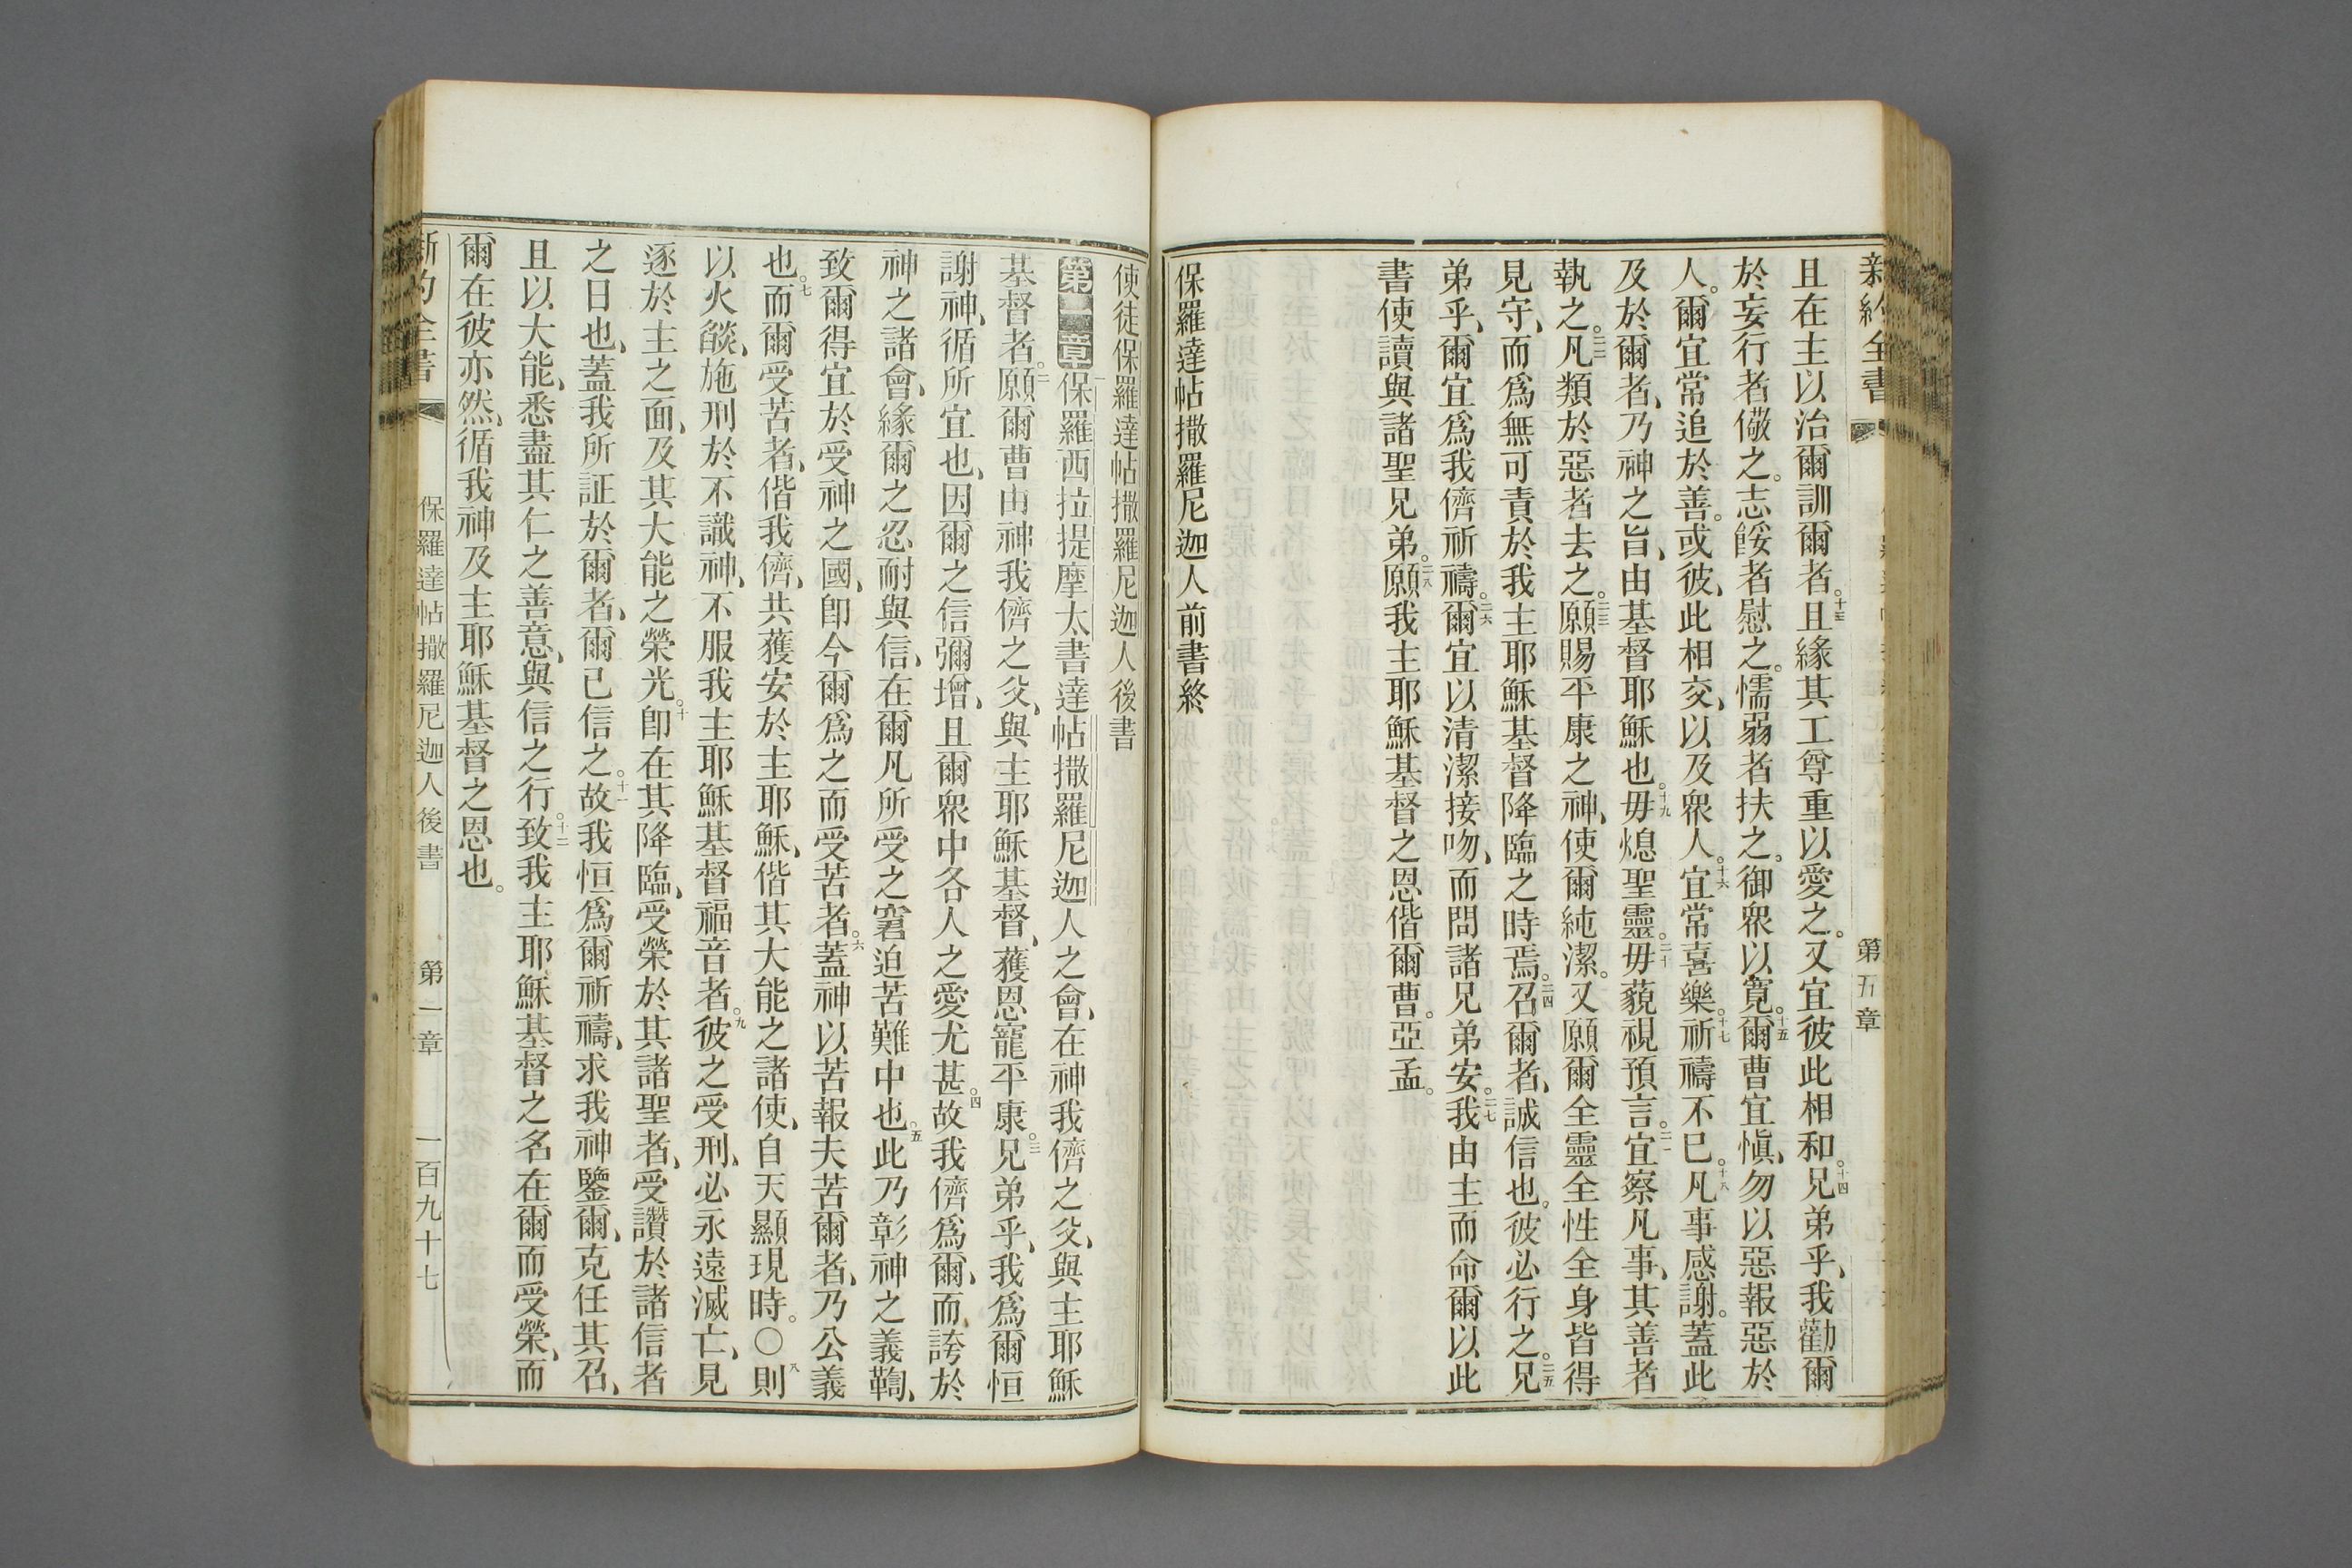 新約全書
第五章
且在主以治爾訓爾者。十三且緣其工尊重以愛之。又宜彼此相和。十四兄弟乎、我勸爾
於妄行者儆之。志餒者慰之。懦弱者扶之。御衆以寬。十五爾曹宜愼、勿以惡報惡於
人。爾宜常追於善。或彼此相交、以及衆人。十六宜常喜樂。十七祈禱不已。十八凡事感謝。蓋此
及於爾者、乃神之旨、由基督耶穌也。十九毋熄聖靈。二十毋藐視預言。二一宜察凡事、其善者
執之。二二凡類於惡者去之。二三願賜平康之神、使爾純潔。又願爾全靈全性全身皆得
見守、而爲無可責於我主耶穌基督降臨之時焉。二四召爾者、誠信也。彼必行之。二五兄
弟乎、爾宜爲我儕祈禱。二六爾宜以清潔接吻、而問諸兄弟安。二七我由主而命爾以此
書使讀與諸聖兄弟。二八願我主耶穌基督之恩偕爾曹。亞孟。
保羅達帖撒羅尼迦人前書終
使徒保羅達帖撒羅尼迦人後書
第一章 一保羅西拉提摩太書達帖撒羅尼迦人之會、在神我儕之父、與主耶穌
基督者。二願爾曹由神我儕之父、與主耶穌基督、獲恩寵平康。三兄弟乎、我爲爾恒
謝神、循所宜也、因爾之信彌增、且爾衆中各人之愛尤甚。四故我儕爲爾、而誇於
神之諸會、緣爾之忍耐與信、在爾凡所受之窘迫苦難中也。五此乃彰神之義鞫、
致爾得宜於受神之國、卽今爾爲之而受苦者。六蓋神以苦報夫苦爾者、乃公義
也。七而爾受苦者、偕我儕、共獲安於主耶穌、偕其大能之諸使、自天顯現時。○八則
以火燄、施刑於不識神、不服我主耶穌基督福音者。九彼之受刑、必永遠滅亡、見
逐於主之面、及其大能之榮光。十卽在其降臨、受榮於其諸聖者、受讚於諸信者
之日也、蓋我所証於爾者、爾已信之。十一故我恒爲爾祈禱、求我神鑒爾、克任其召、
且以大能、悉盡其仁之善意、與信之行。十二致我主耶穌基督之名在爾而受榮、而
爾在彼亦然、循我神及主耶穌基督之恩也。
新約全書
保羅達帖撒羅尼迦人後書
第一章
一百九十七